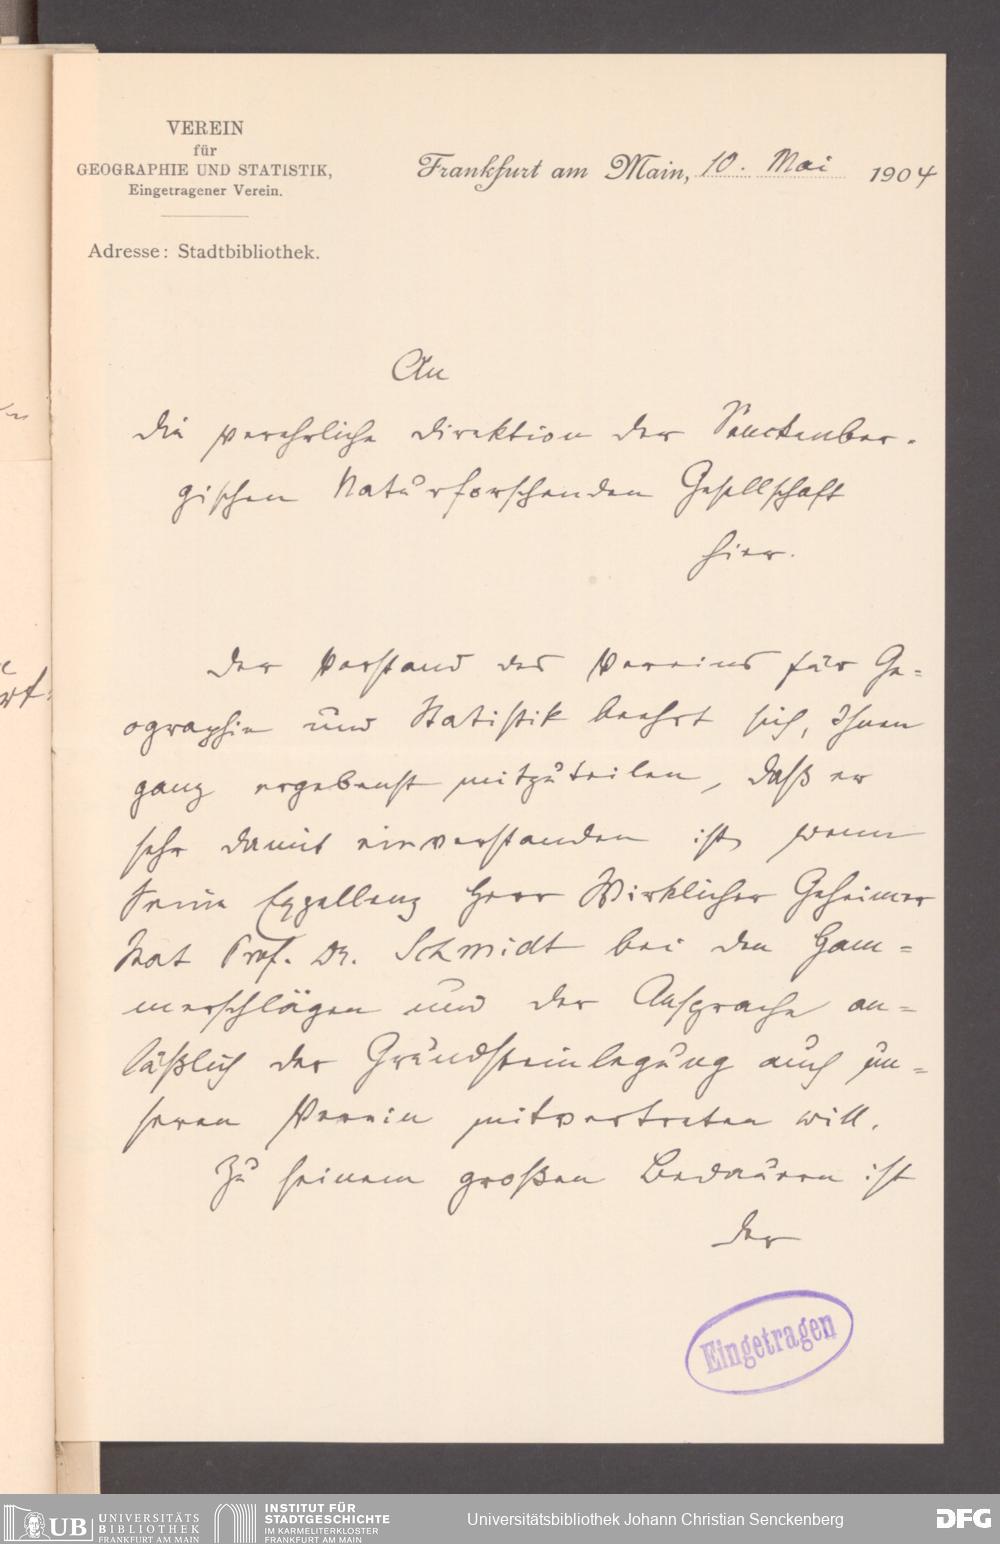 VEREIN
für
GEOGRAPHIE UND STATISTIK,
Eingetragener Verein.
Adresse: Stadtbibliothek.
Frankfurt am Main, 10. Mai 1904
An
die verehrliche Direktion der Senckenber-
gischen Naturforschenden Gesellschaft
hier.
Der Vorstand des Vereins für Ge-
ographie und Statistik beehrt sich, Ihnen
ganz ergebenst mitzuteilen, daß er
sehr damit einverstanden ist, wenn
Seine Exzellenz Herr Wirklicher Geheimer
Rat Prof. Dr. Schmidt bei den Ham-
merschlägen und der Ansprache an-
läßlich der Grundsteinlegung auch un-
seren Verein mitvertreten will.
Zu seinem großen Bedauern ist
der
Eingetragen
UB UNIVERSITÄTS
BIBLIOTHEK
FRANKFURT AM MAIN
INSTITUT FÜR
STADTGESCHICHTE
IM KARMELITERKLOSTER
FRANKFURT AM MAIN
Universitätsbibliothek Johann Christian Senckenberg
DFG